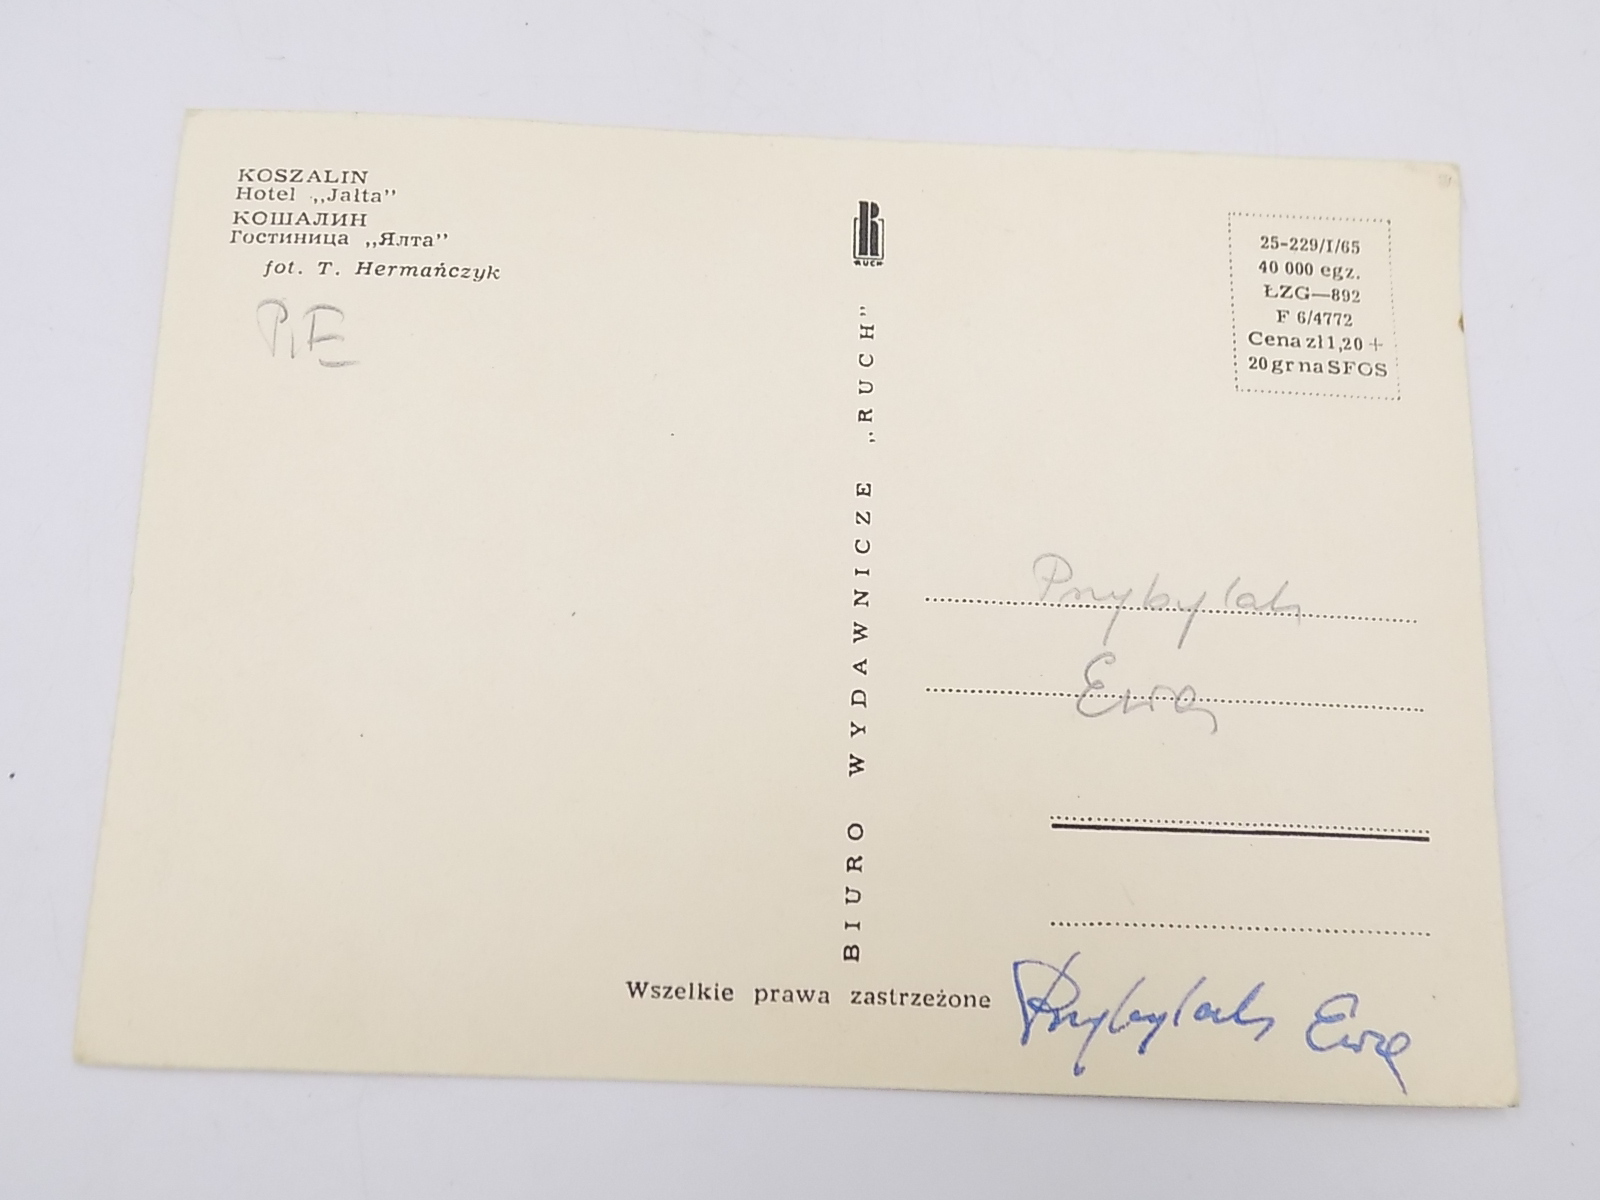 KOSZALIN
Hotel „Jałta”
КОШАЛИН
Гостиница „Ялта”
fot. T. Hermańczyk
P,E
RUCH
25-229/I/65
40 000 egz.
ŁZG—892
F 6/4772
Cena zł 1,20 +
20 gr na SFOS
BIURO WYDAWNICZE „RUCH”
Przybylak
Ewa
Wszelkie prawa zastrzeżone
Przybylak Ewa